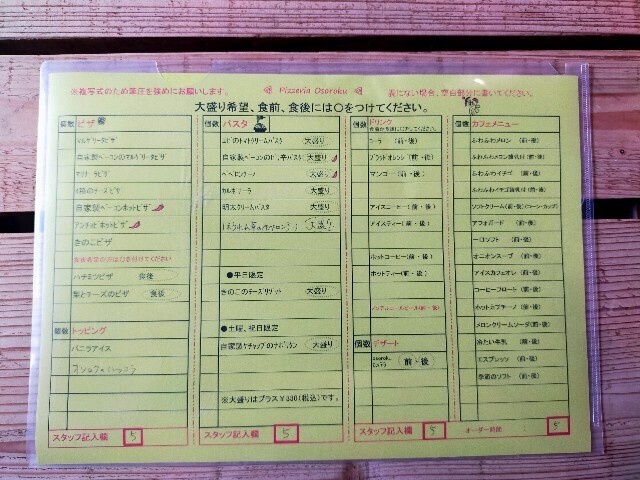 ※複写式のため筆圧を強めにお願いします。
Pizzeria Osoroku
表にない場合、空白部分に書いてください。
大盛り希望、食前、食後には○をつけてください。
個数 ピザ
マルゲリータピザ
自家製ベーコンのマルゲリータピザ
マリナーラピザ
4種のチーズピザ
自家製ベーコンホットピザ
アンチョビホットピザ
きのこピザ
ハチミツピザ 食後
梨とチーズのピザ 食後
個数 トッピング
バニラアイス
スタッフ記入欄 5
個数 パスタ
エビのトマトクリームパスタ 大盛り
大盛り
ペペロンチーノ 大盛り
カルボナーラ 大盛り
明太クリームパスタ 大盛り
大盛り
●平日限定
きのこのチーズリゾット 大盛り
●土曜、祝日限定
自家製ケチャップのナポリタン 大盛り
※大盛りはプラス¥330(税込)です。
スタッフ記入欄 5
個数 ドリンク
コーラ (前・後)
ブラッドオレンジ (前・後)
マンゴー (前・後)
アイスコーヒー(前・後)
アイスティー(前・後)
ホットコーヒー(前・後)
ホットティー(前・後)
ノンアルコールビール(前・後)
個数 デザート
osoroku
前・後
スタッフ記入欄 5
個数 カフェメニュー
ふわふわメロン (前・後)
ふわふわメロン練乳付(前・後)
ふわふわイチゴ (前・後)
ふわふわイチゴ練乳付(前・後)
ソフトクリーム(前・後)(コーン・カップ)
アフォガード (前・後)
一口ソフト (前・後)
オニオンスープ (前・後)
アイスカフェオレ (前・後)
コーヒーフロート (前・後)
ホットカプチーノ (前・後)
メロンクリームソーダ(前・後)
冷たい牛乳 (前・後)
エスプレッソ (前・後)
季節のソフト (前・後)
オーダー時間 5